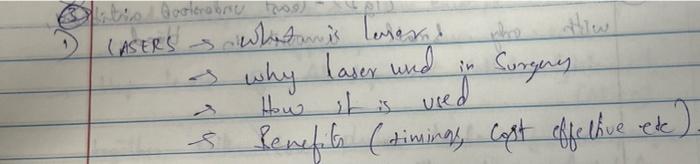 1) LASERS → what is laser.
→ why laser used in Surgery
→ How it is used
→ Benefits (timings, cost effective etc).